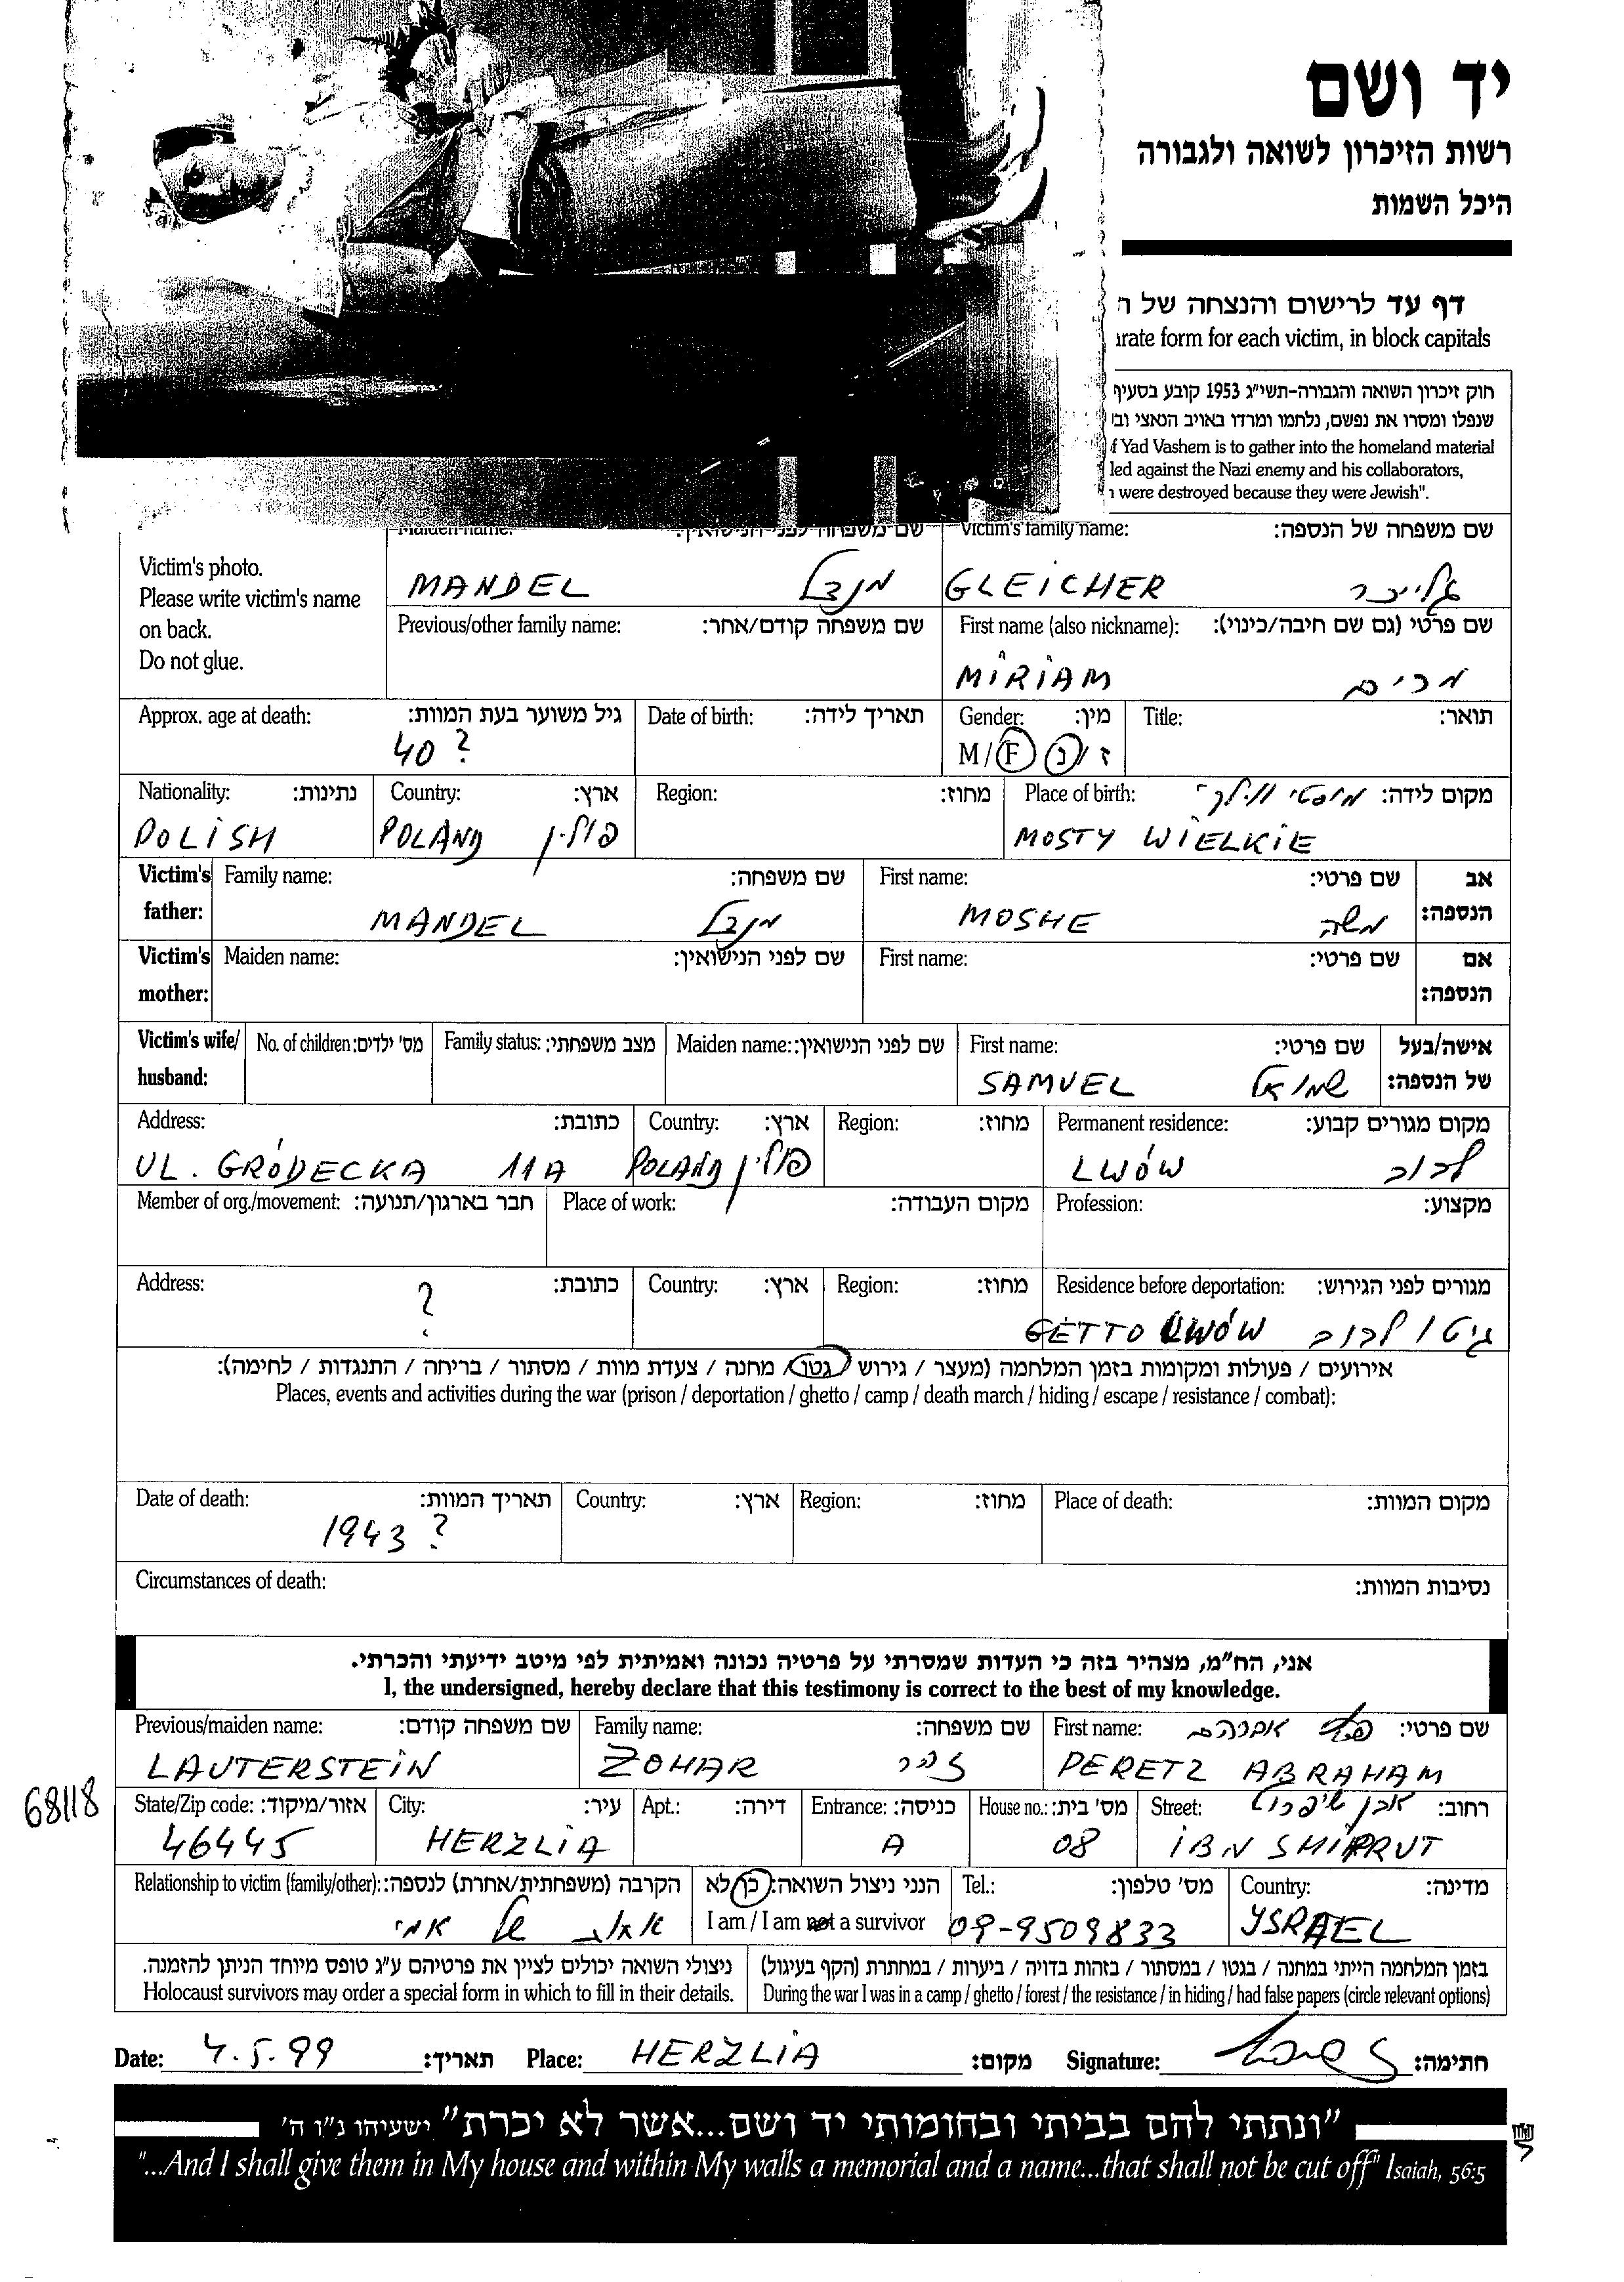 יד ושם
רשות הזיכרון לשואה ולגבורה
היכל השמות
דף עד לרישום והנצחה של
rate form for each victim, in block capitals
חוק זיכרון השואה והגבורה-תשי״ג 1953 קובע בסעיף
שנפלו ומסרו את נפשם, נלחמו ומרדו באויב הנאצי
of Yad Vashem is to gather into the homeland material
led against the Nazi enemy and his collaborators,
were destroyed because they were Jewish".
Victim's photo.
Please write victim's name
on back.
Do not glue.
Maiden name: שם משפחה לפני הנישואין:
MANDEL מנדל
Victim's family name: שם משפחה של הנספה:
GLEICHER גלייכר
Previous/other family name: שם משפחה קודם/אחר:
First name (also nickname): שם פרטי (גם שם חיבה/כינוי):
MIRIAM מרים
Approx. age at death: גיל משוער בעת המוות:
40 ?
Date of birth: תאריך לידה:
Gender: מין:
M/F ז/נ
Title: תואר:
Nationality: נתינות:
POLISH
Country: ארץ:
POLAND פולין
Region: מחוז:
Place of birth: מקום לידה: מוסטי
MOSTY WIELKIE
Victim's father: אב הנספה:
Family name: שם משפחה:
MANDEL מנדל
First name: שם פרטי:
MOSHE משה
Victim's mother: אם הנספה:
Maiden name: שם לפני הנישואין:
First name: שם פרטי:
Victim's wife/husband: אישה/בעל של הנספה:
No. of children: מס' ילדים:
Family status: מצב משפחתי:
Maiden name: שם לפני הנישואין:
First name: שם פרטי:
SAMUEL שמואל
Address: כתובת:
UL. GRÓDECKA 11A
Country: ארץ:
POLAND פולין
Region: מחוז:
Permanent residence: מקום מגורים קבוע:
LWÓW לבוב
Member of org./movement: חבר בארגון/תנועה:
Place of work: מקום העבודה:
Profession: מקצוע:
Address: כתובת:
?
Country: ארץ:
Region: מחוז:
Residence before deportation: מגורים לפני הגירוש:
GETTO LWÓW גיטו לבוב
אירועים / פעולות ומקומות בזמן המלחמה (מעצר / גירוש / גטו / מחנה / צעדת מוות / מסתור / בריחה / התנגדות / לחימה):
Places, events and activities during the war (prison / deportation / ghetto / camp / death march / hiding / escape / resistance / combat):
Date of death: תאריך המוות:
1943 ?
Country: ארץ:
Region: מחוז:
Place of death: מקום המוות:
Circumstances of death: נסיבות המוות:
אני, הח״מ, מצהיר בזה כי העדות שמסרתי על פרטיה נכונה ואמיתית לפי מיטב ידיעתי והכרתי.
I, the undersigned, hereby declare that this testimony is correct to the best of my knowledge.
Previous/maiden name: שם משפחה קודם:
LAUTERSTEIN
Family name: שם משפחה:
ZOHAR זהר
First name: שם פרטי: פרץ אברהם
PERETZ ABRAHAM
68118
State/Zip code: אזור/מיקוד:
46445
City: עיר:
HERZLIA
Apt.: דירה:
Entrance: כניסה:
A
House no.: מס' בית:
08
Street: רחוב: אבן שיפרוט
IBN SHIPRUT
Relationship to victim (family/other): הקרבה (משפחתית/אחרת) לנספה:
של אמי
הנני ניצול השואה: כן/לא
I am / I am not a survivor
Tel.: מס' טלפון:
09-9509833
Country: מדינה:
YSRAEL
ניצולי השואה יכולים לציין את פרטיהם ע״ג טופס מיוחד הניתן להזמנה.
Holocaust survivors may order a special form in which to fill in their details.
בזמן המלחמה הייתי במחנה / בגטו / במסתור / בזהות בדויה / ביערות / במחתרת (הקף בעיגול)
During the war I was in a camp / ghetto / forest / the resistance / in hiding / had false papers (circle relevant options)
Date: 4.5.99 תאריך: Place: HERZLIA מקום: Signature: חתימה:
"ונתתי להם בביתי ובחומותי יד ושם...אשר לא יכרת" ישעיהו נ״ו ה'
"...And I shall give them in My house and within My walls a memorial and a name...that shall not be cut off" Isaiah, 56:5